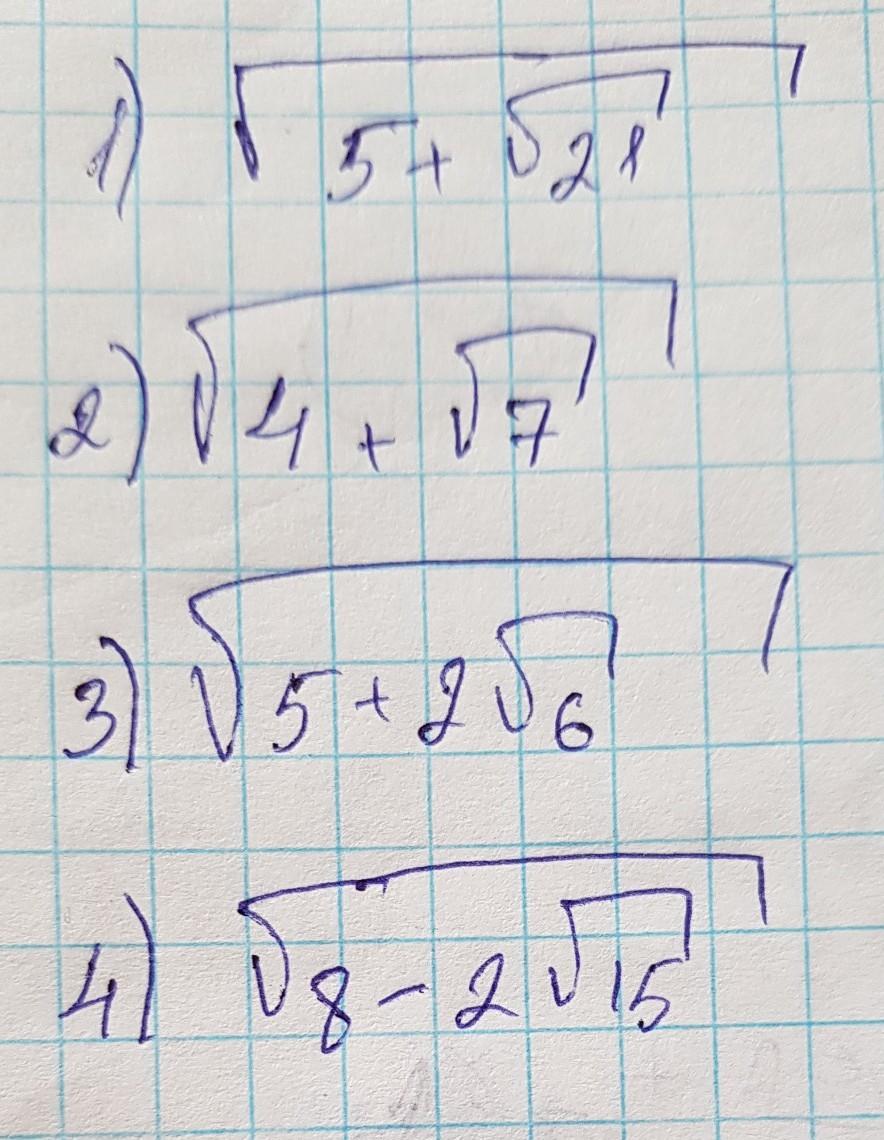 1) √(5 + √21)
2) √(4 + √7)
3) √(5 + 2√6)
4) √(8 - 2√15)